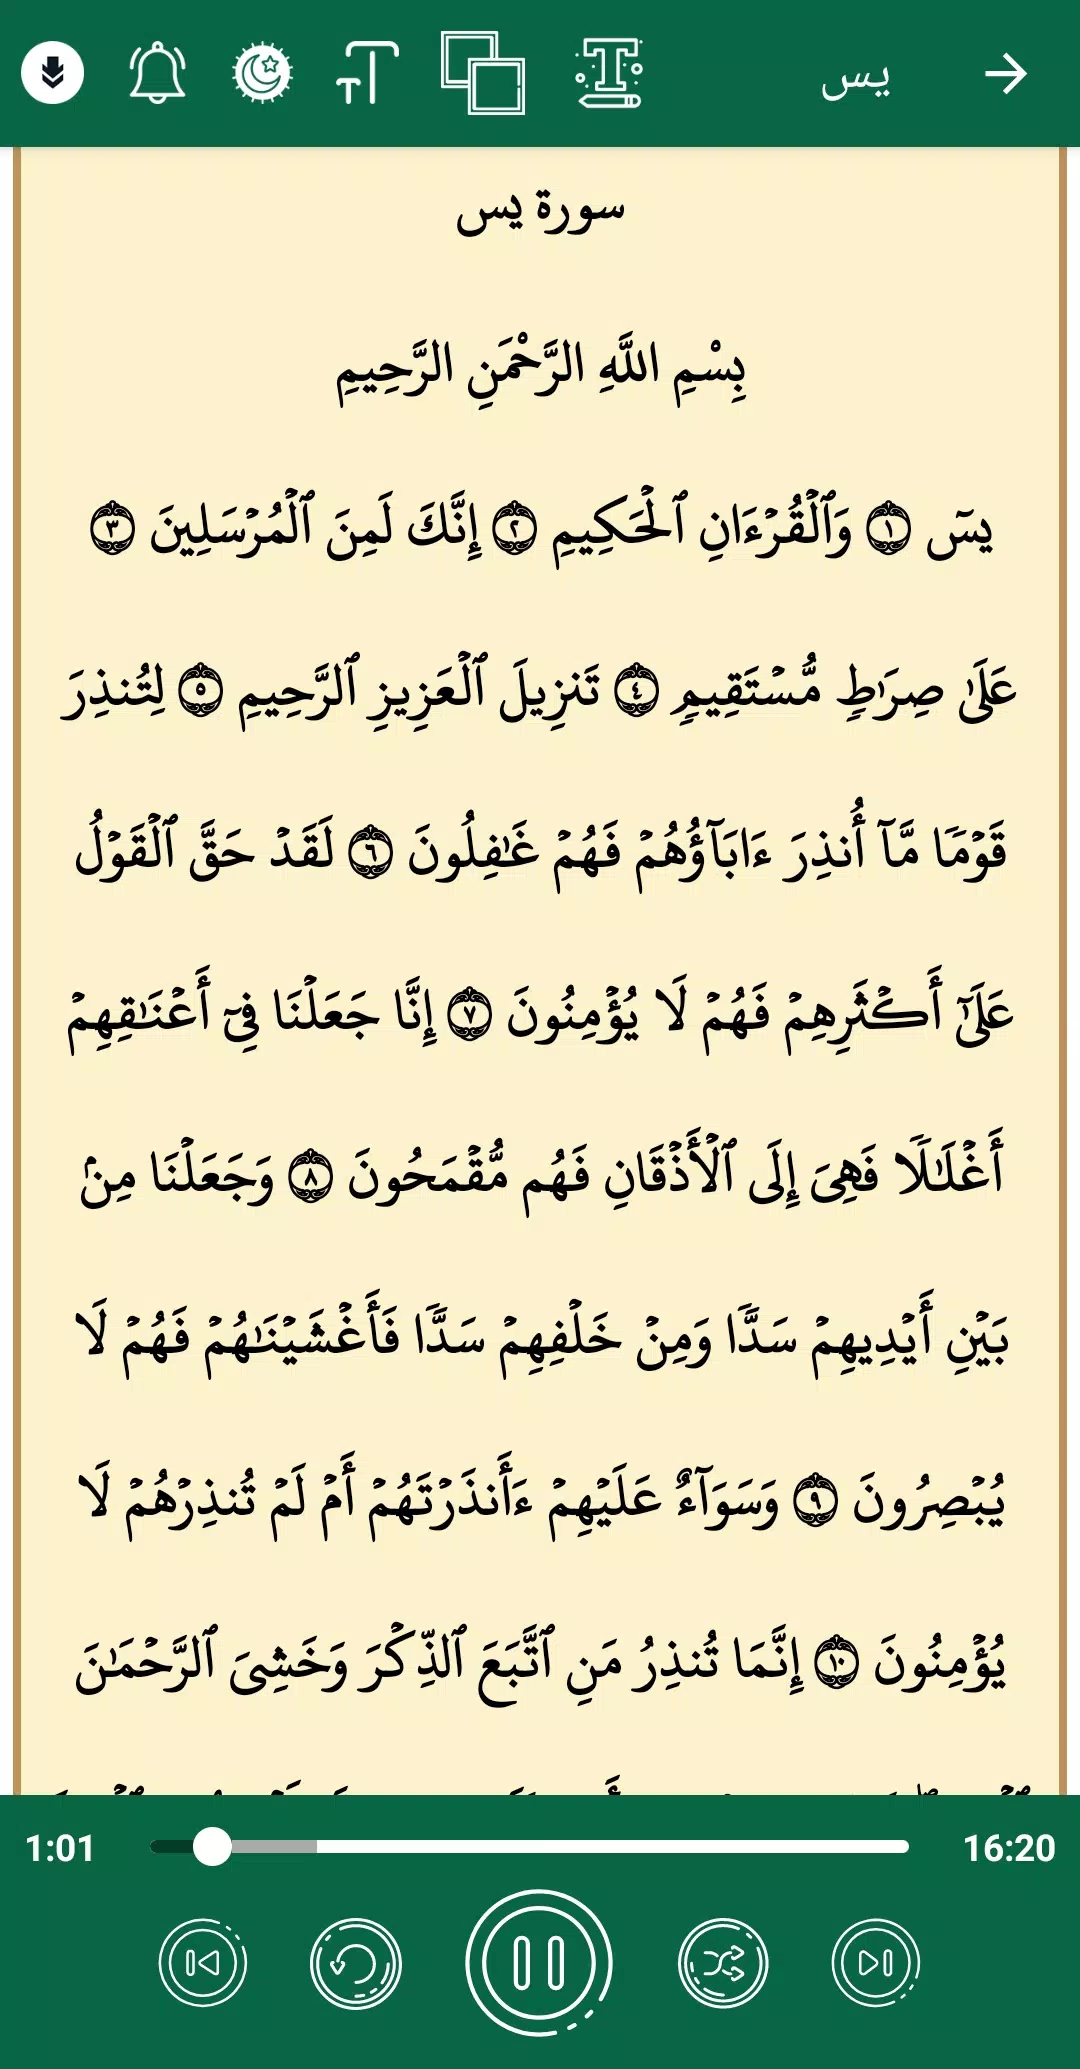 يس
سورة يس
بِسْمِ اللَّهِ الرَّحْمَنِ الرَّحِيمِ
يسٓ ١ وَٱلْقُرْءَانِ ٱلْحَكِيمِ ٢ إِنَّكَ لَمِنَ ٱلْمُرْسَلِينَ ٣
عَلَىٰ صِرَٰطٍ مُّسْتَقِيمٍ ٤ تَنزِيلَ ٱلْعَزِيزِ ٱلرَّحِيمِ ٥ لِتُنذِرَ
قَوْمًا مَّآ أُنذِرَ ءَابَآؤُهُمْ فَهُمْ غَٰفِلُونَ ٦ لَقَدْ حَقَّ ٱلْقَوْلُ
عَلَىٰٓ أَكْثَرِهِمْ فَهُمْ لَا يُؤْمِنُونَ ٧ إِنَّا جَعَلْنَا فِىٓ أَعْنَٰقِهِمْ
أَغْلَٰلًا فَهِىَ إِلَى ٱلْأَذْقَانِ فَهُم مُّقْمَحُونَ ٨ وَجَعَلْنَا مِنۢ
بَيْنِ أَيْدِيهِمْ سَدًّا وَمِنْ خَلْفِهِمْ سَدًّا فَأَغْشَيْنَٰهُمْ فَهُمْ لَا
يُبْصِرُونَ ٩ وَسَوَآءٌ عَلَيْهِمْ ءَأَنذَرْتَهُمْ أَمْ لَمْ تُنذِرْهُمْ لَا
يُؤْمِنُونَ ١٠ إِنَّمَا تُنذِرُ مَنِ ٱتَّبَعَ ٱلذِّكْرَ وَخَشِىَ ٱلرَّحْمَٰنَ
1:01
16:20